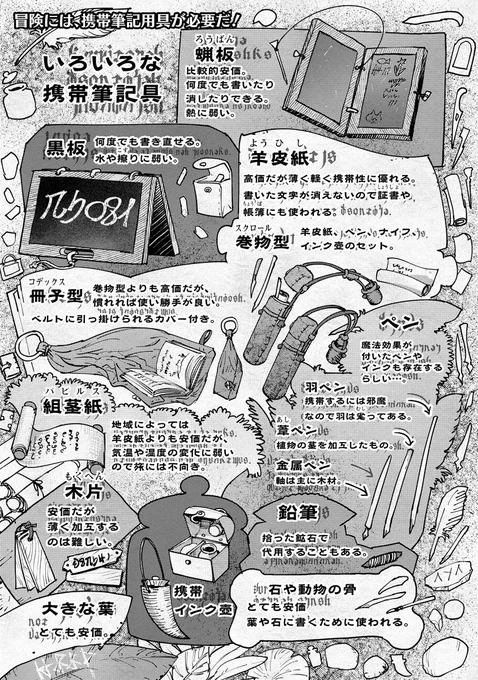 冒険には、携帯筆記用具が必要だ!!
いろいろな
携帯筆記具
ろうばん
蝋板
比較的安価。
何度でも書いたり
消したりできる。
熱に弱い。
黒板
何度でも書き直せる。
水や擦りに弱い。
ようひし
羊皮紙
高価だが薄く軽く携帯性に優れる。
書いた文字が消えないので証書や
帳簿にも使われる。
スクロール
巻物型
羊皮紙、ペン、ナイフ、
インク壺のセット。
コデックス
冊子型
巻物型よりも高価だが、
慣れれば使い勝手が良い。
ベルトに引っ掛けられるカバー付き。
ペン
魔法効果が
付いたペンや
インクも存在する
らしい…
羽ペン
携帯するには邪魔
なので羽は毟ってある。
あし
葦ペン
植物の茎を加工したもの。
金属ペン
軸は主に木材。
パピルス
組茎紙
地域によっては
羊皮紙よりも安価だが、
気温や湿度の変化に弱い
ので旅には不向き。
もくへん
木片
安価だが
薄く加工する
のは難しい。
携帯
インク壺
鉛筆
拾った鉱石で
代用することもある。
石や動物の骨
とても安価
葉や石に書くために使われる。
大きな葉
とても安価。